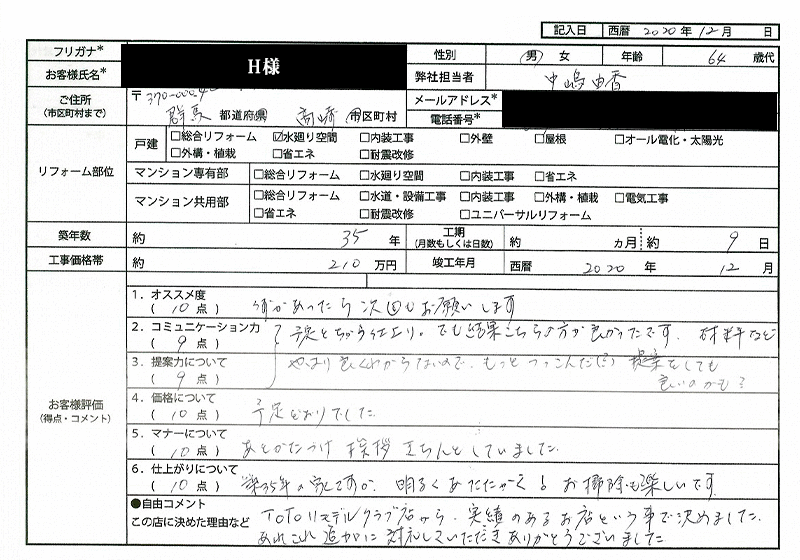 記入日 西暦 2020年 12月 日
フリガナ*
お客様氏名* H様 性別 男 女 年齢 64 歳代
弊社担当者 中嶋由香
ご住所 (市区町村まで) 〒370-00 群馬 都道府県 高崎 市区町村
メールアドレス*
電話番号*
リフォーム部位
戸建 □総合リフォーム ☑水廻り空間 □内装工事 □外壁 □屋根 □オール電化・太陽光
□外構・植栽 □省エネ □耐震改修
マンション専有部 □総合リフォーム □水廻り空間 □内装工事 □省エネ
マンション共用部 □総合リフォーム □水道・設備工事 □内装工事 □外構・植栽 □電気工事
□省エネ □耐震改修 □ユニバーサルリフォーム
築年数 約 35 年 工期 (月数もしくは日数) 約 ヵ月 約 9 日
工事価格帯 約 210 万円 竣工年月 西暦 2020 年 12 月
お客様評価 (得点・コメント)
1. オススメ度
( 10 点 ) 何かあったら次回もお願いします
2. コミュニケーション力
( 9 点 ) 予定とちがう仕上り。でも結果こちらの方が良かったです。材料など
3. 提案力について
( 9 点 ) やはり良くわからないので、もっとつっこんだ(?)提案をしても
良いのかも?
4. 価格について
( 10 点 ) 予定どおりでした
5. マナーについて
( 10 点 ) あとかたづけ 挨拶 きちんとしていました
6. 仕上がりについて
( 10 点 ) 築35年の家ですが、明るくあたたかく!お掃除も楽しいです
●自由コメント
この店に決めた理由など TOTOリモデルクラブ店から、実績のあるお店という事で決めました。
あれこれ追加に対応していただきありがとうございました